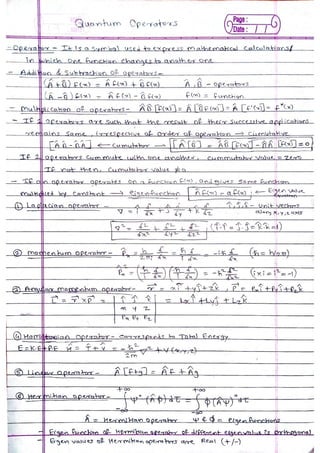 Quantum Operators
Page:
Date: / /
- Operator - It is a symbol used to express mathematical calculations/
In which one function changes to another one
- Addition & Subtraction of operators -
(Â + B̂) F(x) = Â F(x) + B̂ f(x) Â, B̂ - operators
(Â - B̂) f(x) = Â f(x) - B̂ f(x) f(x) = function
- multiplication of operators - Â B̂ [f(x)] = Â [B̂ F(x)] = Â [F'(x)] = F"(x)
- If 2 operators are such that the result of their successive applications
remains same, irrespective of order of operation → Cumutative
[ÂB̂ = B̂Â] ← cumutator → [Â B̂] = ÂB̂ [F(x)] - B̂Â [F(x)] = 0
If 2 operators commute with one another, cummutator value = zero
If not then, Cumutator value ≠ 0
- If an operator operates on a function f(x) and gives same function
multiplied by constant → Eigenfunction Â f(x) = a f(x) ; ← Eigen value equation
① Laplacian operator - ∇ = î d/dx + ĵ d/dy + k̂ d/dz î, ĵ, k̂ - Unit vectors along x, y, z axes
∇² = d²/dx² + d²/dy² + d²/dz² (î·î = ĵ·ĵ = k̂·k̂ = 1)
② momentum operator - P̂x = h/2πi d/dx = ħ/i d/dx = -iħ d/dx (ħ = h/2π)
P̂x² = (ħ/i d/dx)(ħ/i d/dx) = -ħ² d²/dx² (i×i = i² = -1)
③ Angular momentum operator - r = xî + yĵ + zk̂, P = Pxî + Pyĵ + Pzk̂
L = r × P = | î ĵ k̂ | = Lxî + Lyĵ + Lzk̂
x y z
Px Py Pz
④ Hamiltonian operator - corresponds to Total Energy
E = KE + PE Ĥ = T̂ + V̂ = -ħ²/2m ∇² + V(x,y,z)
⑤ Linear operator - Â [f+g] = Âf + Âg
⑥ Hermitian operator - ∫ ψ* (Âφ) dτ = ∫ φ (Âψ)* dτ
Â = Hermitian operator ψ & φ = eigen functions
- Eigen function of Hermitian operator of different eigen value is orthogonal
- Eigen values of Hermitian operators are Real (+/-)